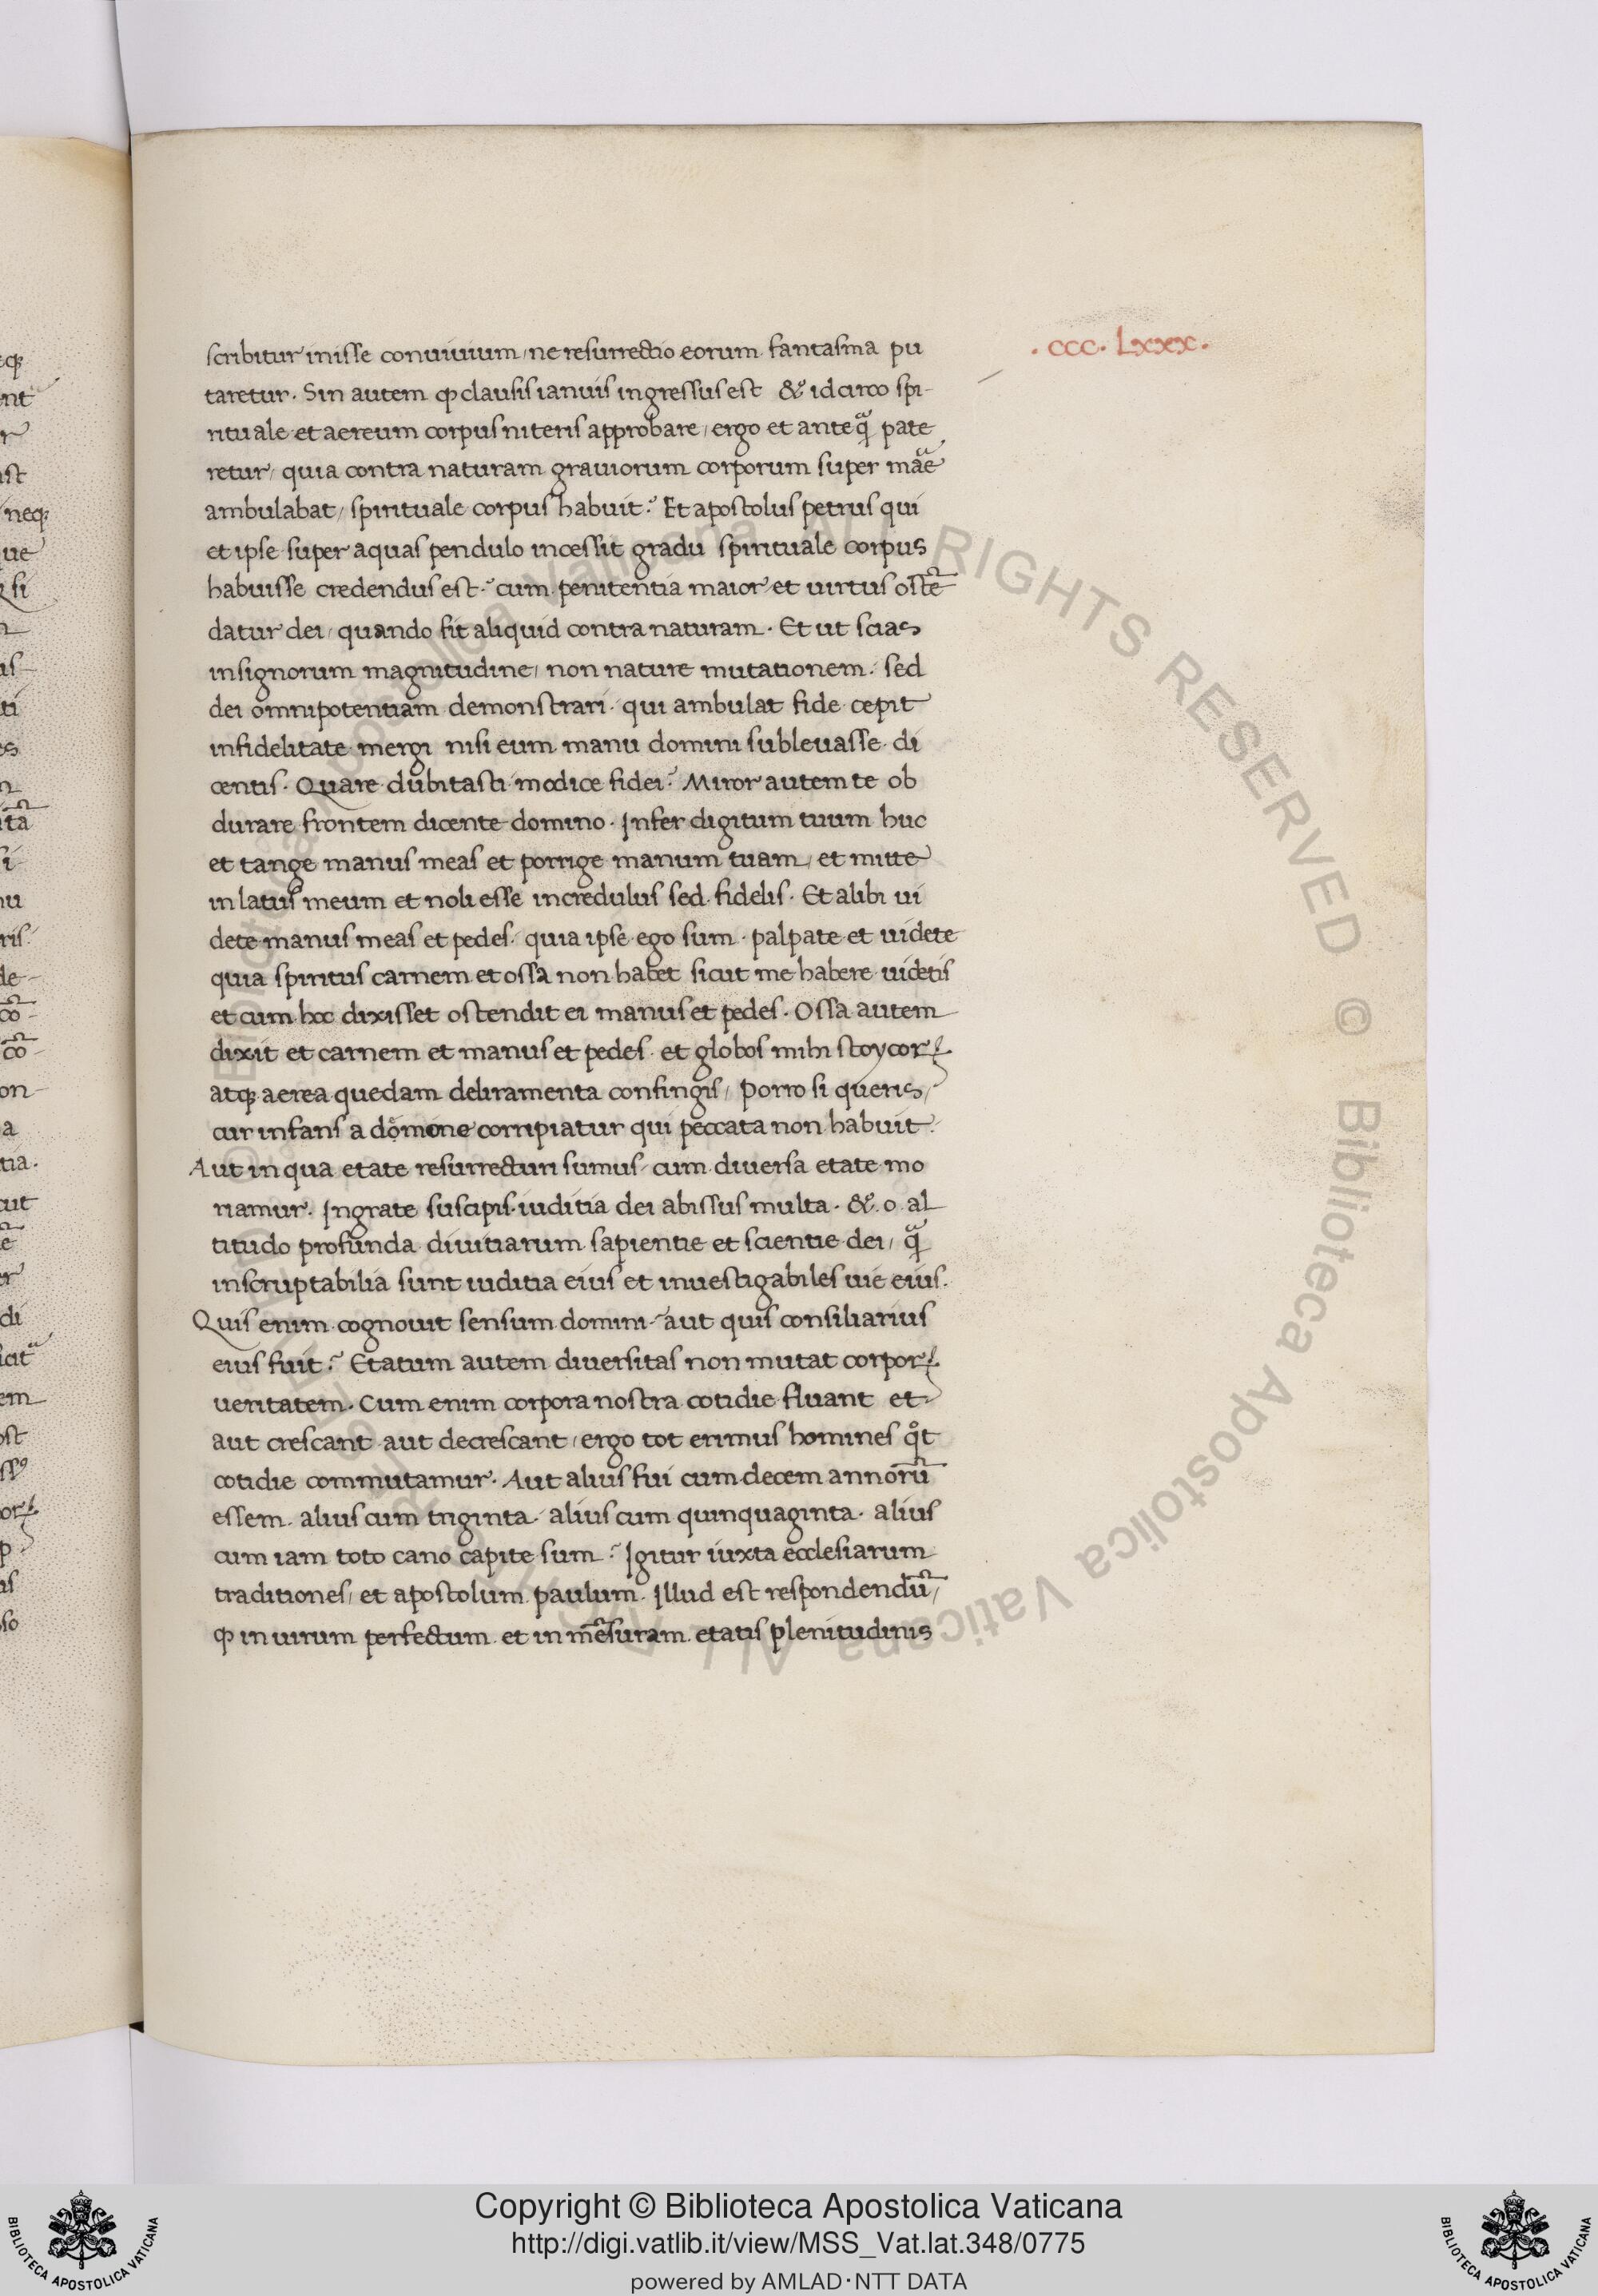 . ccc. Lxxx.
scribitur inisse conuiuium, ne resurrectio eorum fantasma pu
taretur. Sin autem ꝙ clausis ianuis ingressus est & idcirco spi-
rituale et aereum corpus niteris approbare, ergo et anteqᷓ pate
retur, quia contra naturam grauiorum corporum super maᷓe
ambulabat, spirituale corpus habuit? Et apostolus petrus qui
et ipse super aquas pendulo incessit gradu spirituale corpus
habuisse credendus est? cum penitentia maior et uirtus ostē
datur dei, quando fit aliquid contra naturam. Et ut scias
in signorum magnitudine, non nature mutationem. sed
dei omnipotentiam demonstrari. qui ambulat fide cepit
infidelitate mergi nisi eum manu domini subleuasse di
centis. Quare dubitasti modice fidei? Miror autem te ob
durare frontem dicente domino. Infer digitum tuum huc
et tange manus meas et porrige manum tuam, et mitte
in latus meum et noli esse incredulus sed fidelis. Et alibi ui
dete manus meas et pedes. quia ipse ego sum. palpate et uidete
quia spiritus carnem et ossa non habet sicut me habere uidetis
et cum hoc dixisset ostendit ei manus et pedes. Ossa autem
dixit et carnem et manus et pedes. et globos mihi stoycorꝝ
atqꝫ aerea quedam deliramenta confingis, Porro si queris,
cur infans a domone corripiatur qui peccata non habuit?
Aut in qua etate resurrecturi sumus, cum diuersa etate mo
riamur. Ingrate suscipis. iuditia dei abissus multa. &. o. al
titudo profunda diuitiarum sapientie et scientie dei, qᷓ
inscruptabilia sunt iuditia eius et inuestigabiles uie eius.
Quis enim cognouit sensum domini? aut quis consiliarius
eius fuit? Etatum autem diuersitas non mutat corporꝝ
ueritatem. Cum enim corpora nostra cotidie fluant et
aut crescant aut decrescant, ergo tot erimus homines qͦt
cotidie commutamur. Aut alius fui cum decem annorū
essem. alius cum triginta. alius cum quinquaginta. alius
cum iam toto cano capite sum? Igitur iuxta ecclesiarum
traditiones, et apostolum paulum. Illud est respondendū,
ꝙ in uirum perfectum et in mēsuram etatis plenitudinis
Copyright © Biblioteca Apostolica Vaticana
http://digi.vatlib.it/view/MSS_Vat.lat.348/0775
powered by AMLAD·NTT DATA